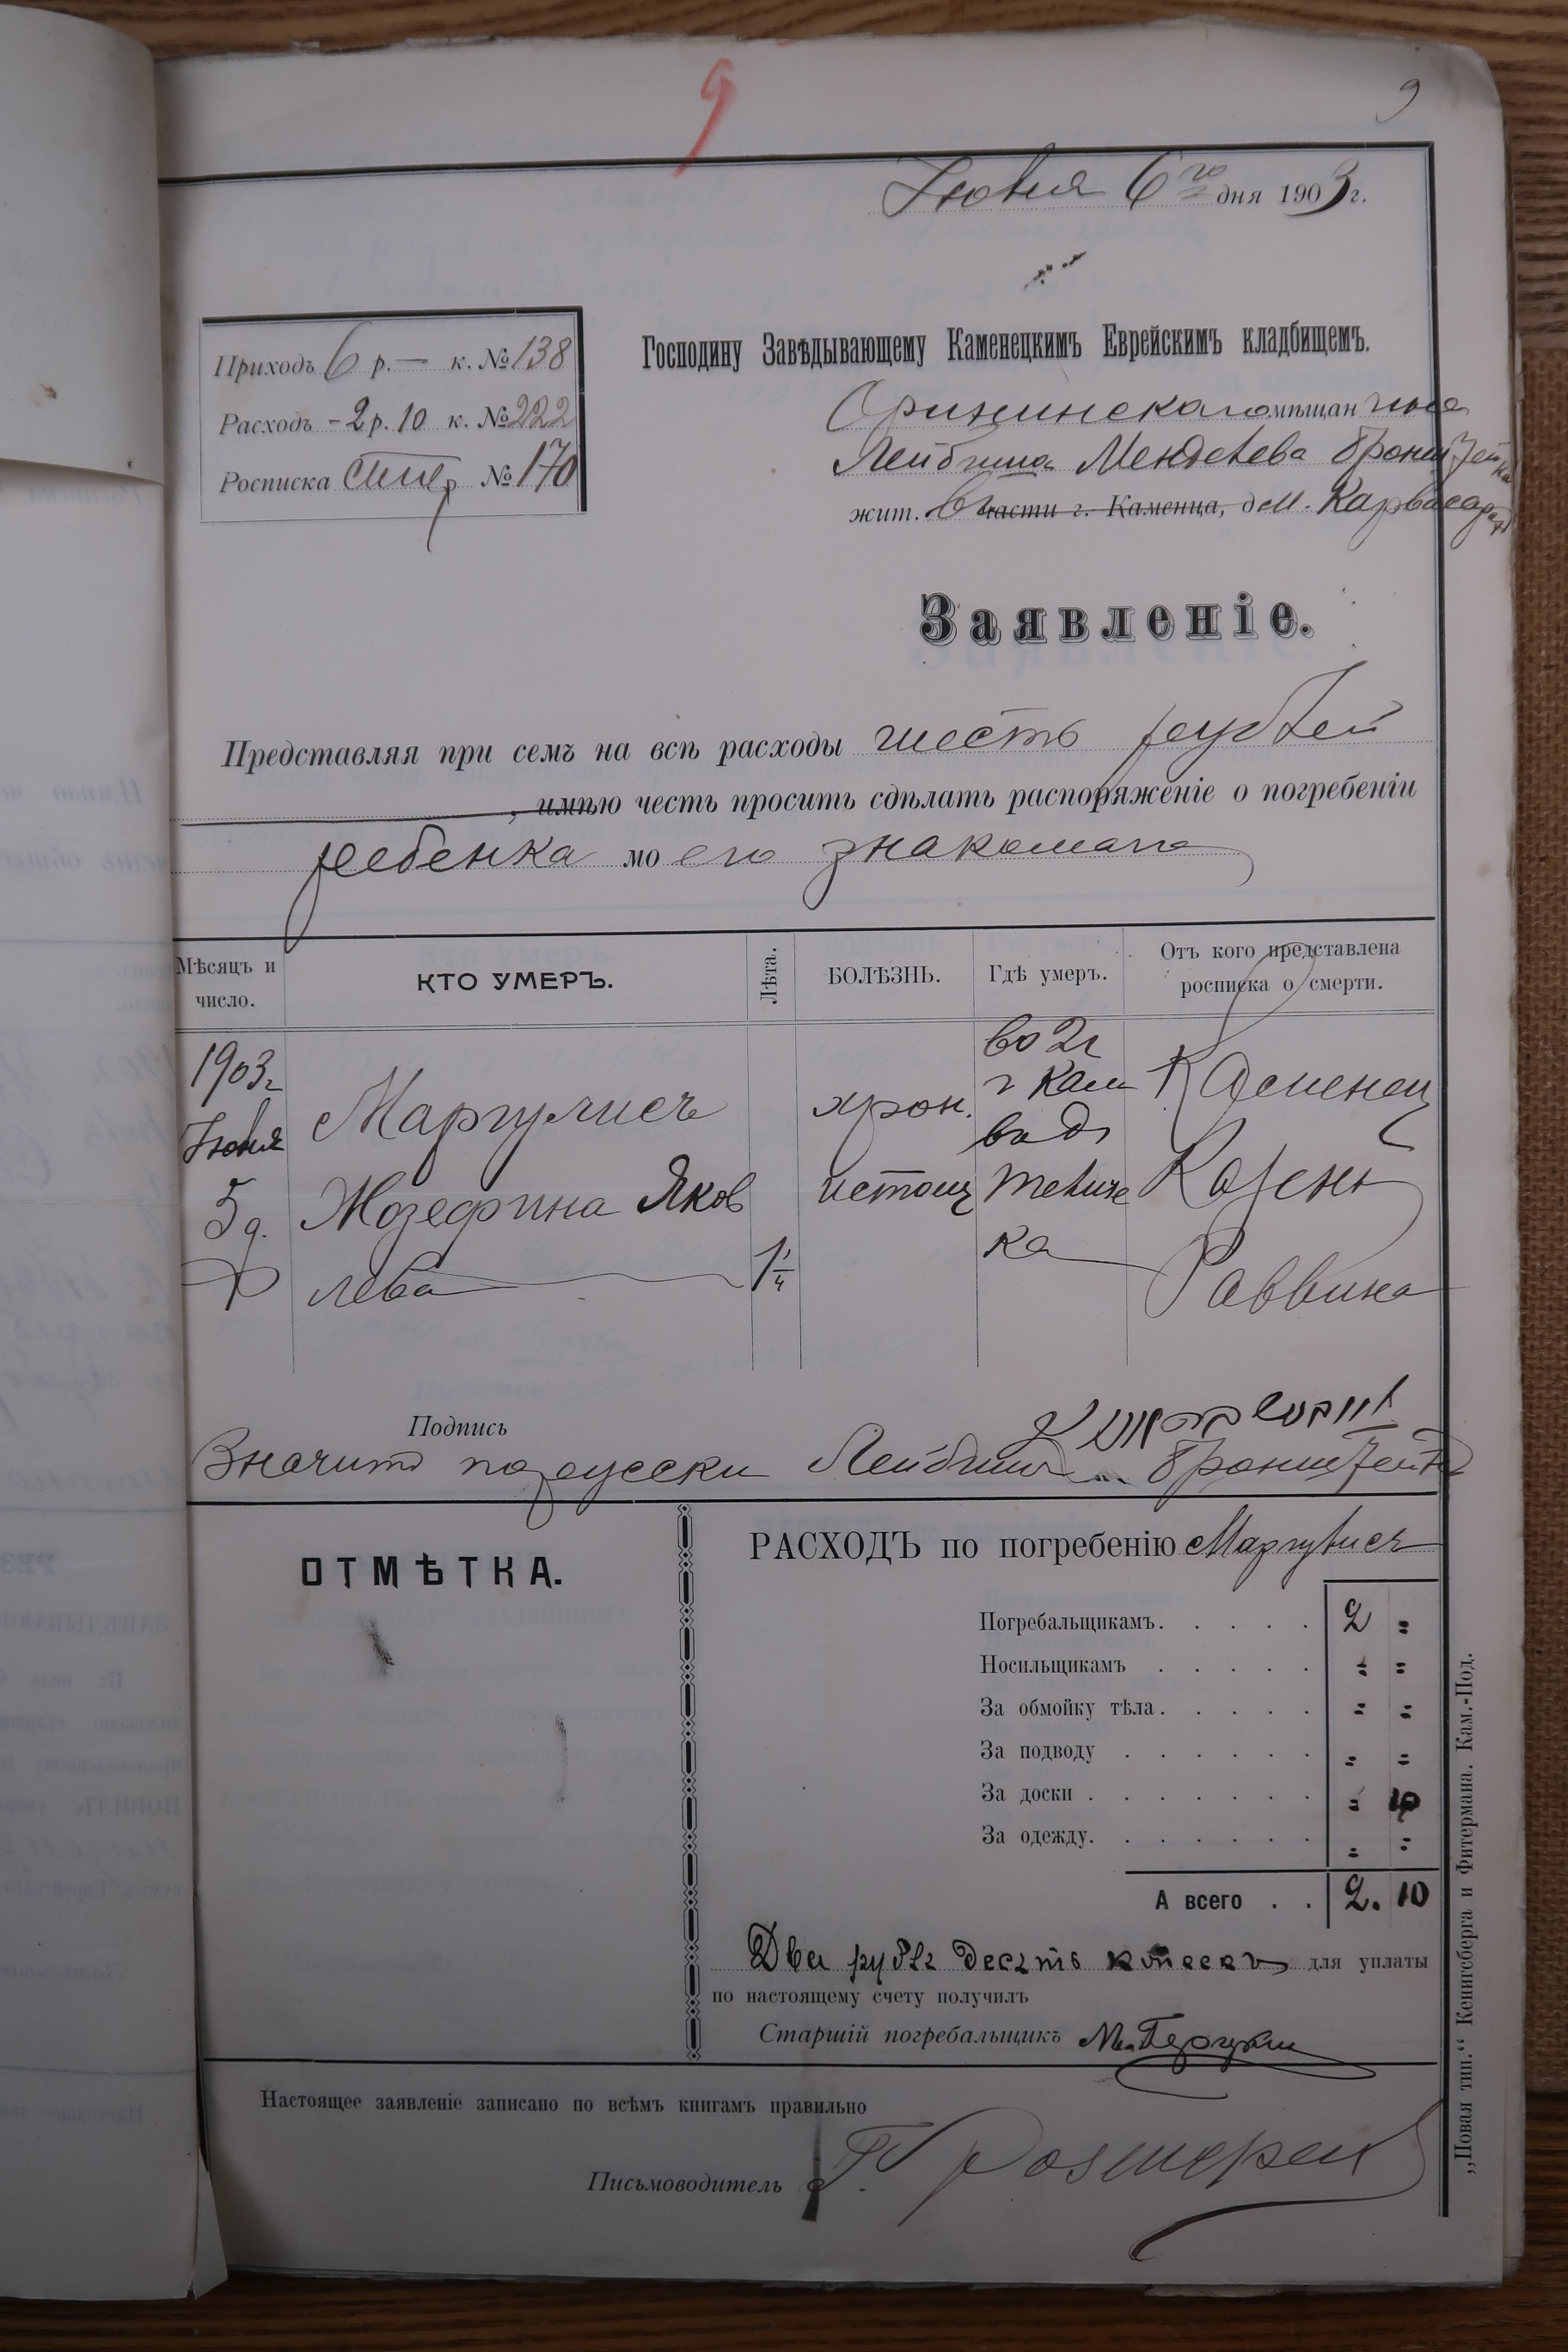 9
9
Іюня 6го дня 1903 г.
Приходъ 6 р. — к. № 138
Расходъ - 2 р. 10 к. № 222
Росписка № 170
Господину Завѣдывающему Каменецкимъ Еврейскимъ кладбищемъ.
Орининскаго мѣщан
Лейбиша Менделева Бронштейна
жит. части г. Каменца, д м. Карвасарах
Заявленіе.
Представляя при семъ на всѣ расходы шесть рублей
, имѣю честь просить сдѣлать распоряженіе о погребеніи
ребенка мо его знакомаго
Мѣсяцъ и число.
КТО УМЕРЪ.
Лѣта.
БОЛѢЗНЬ.
Гдѣ умеръ.
Отъ кого представлена росписка о смерти.
1903г Іюня 5 д.
Маргулисъ
Жозефина Яков
лева
1 1/4
хрон.
истощ
во 2ч
г Кам
ка
Каменец
Казен
Раввина
Подпись
Значит по русски Лейбиш Бронштейн
ОТМѢТКА.
РАСХОДЪ по погребенію Маргулисъ
Погребальщикамъ. . . . . 2 "
Носильщикамъ . . . . . " "
За обмойку тѣла. . . . . " "
За подводу . . . . . . " "
За доски . . . . . . . " 10
За одежду. . . . . . . " "
А всего . . 2. 10
Два рубл десять копеекъ для уплаты
по настоящему счету получилъ
Старшій погребальщикъ
Настоящее заявленіе записано по всѣмъ книгамъ правильно
Письмоводитель
„Новая тип.“ Кенигсберга и Фитермана. Кам.-Под.